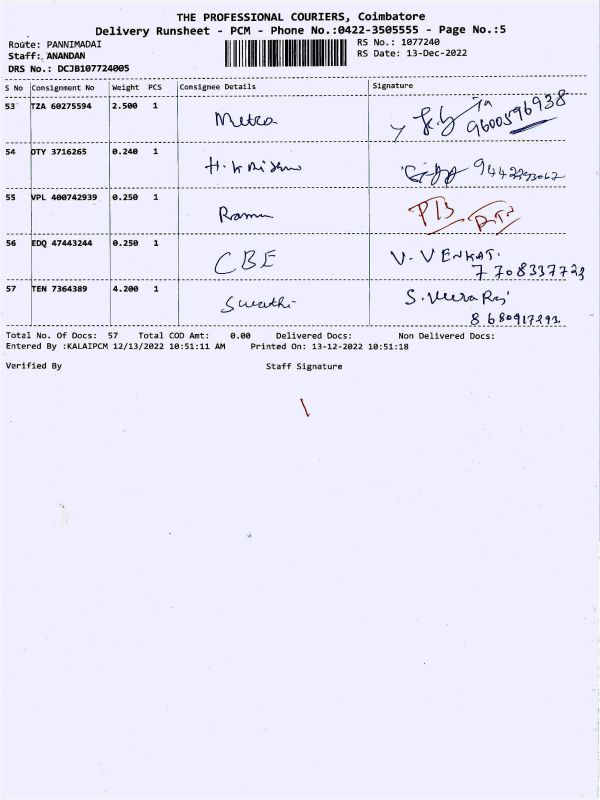 THE PROFESSIONAL COURIERS, Coimbatore
Delivery Runsheet - PCM - Phone No.:0422-3505555 - Page No.:5
Route: PANNIMADAI RS No.: 1077240
Staff: ANANDAN RS Date: 13-Dec-2022
DRS No.: DCJB107724005
S No Consignment No Weight PCS Consignee Details Signature
53 TZA 60275594 2.500 1 Metro 9600596938
54 DTY 3716265 0.240 1
55 VPL 400742939 0.250 1 Ramu
56 EDQ 47443244 0.250 1 CBE V. VENKAT.
7708337723
57 TEN 7364389 4.200 1 Swathi S. Veera Raj
Total No. Of Docs: 57 Total COD Amt: 0.00 Delivered Docs: Non Delivered Docs:
Entered By :KALAIPCM 12/13/2022 10:51:11 AM Printed On: 13-12-2022 10:51:18
Verified By Staff Signature